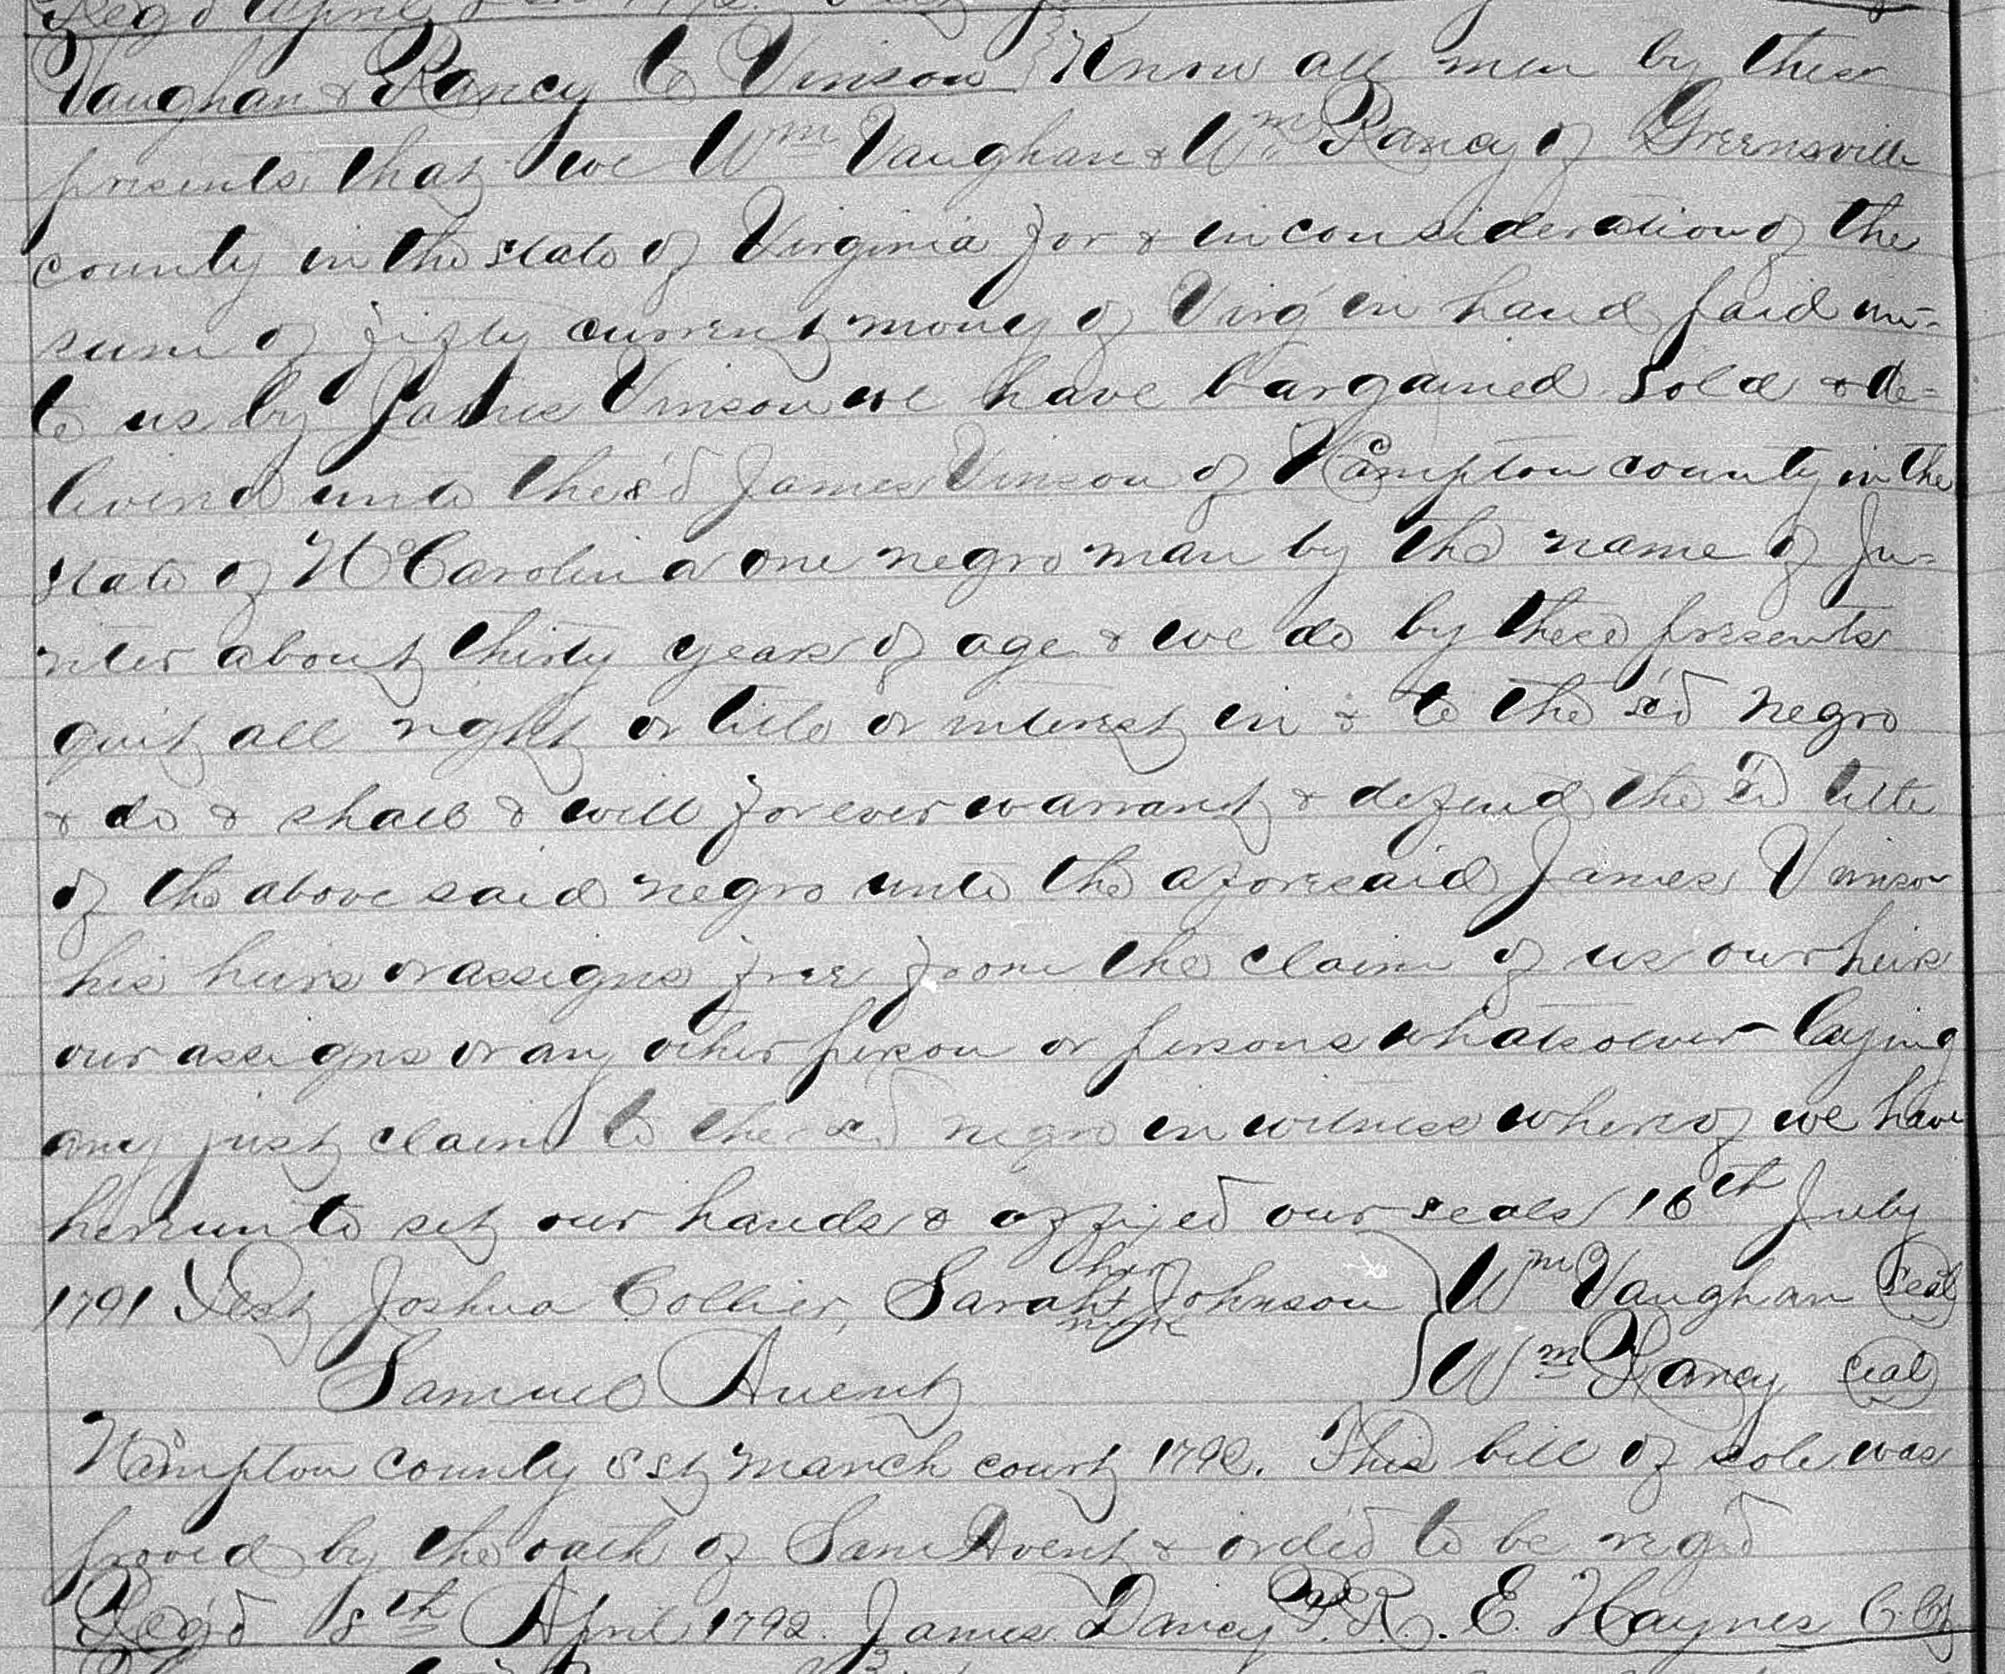 Reg'd April
Vaughan & Rancy to Vinson } Know all men by these
presents that we Wm Vaughan & Wm Rancy of Greensville
county in the state of Virginia for & in consideration of the
sum of fifty current money of Virg' in hand paid un-
to us by James Vinson we have bargained sold & de=
liverd unto the s'd James Vinson of N'Hampton county in the
state of No Carolina one negro man by the name of Ju=
niter about thirty years of age & we do by these presents
quit all right or title or interest in & to the s'd negro
& do & shall & will forever warrant & defend the s'd title
of the above said negro unto the aforesaid James Vinson
his heirs or assigns free from the claim of us our heirs
our assigns or any other person or persons whatsoever laying
any just claim to the sd negro in witness whereof we have
hereunto set our hands & affixed our seals 16th July
1791 Test Joshua Collier, Sarah her + mark Johnson } Wm Vaughan seal
Samuel Avent } Wm Rancy seal
N'Hampton county Sst March court 1792. This bill of sale was
proved by the oath of Sam Avent & ord'd to be reg'd
Reg'd 18th April 1792. James Dancy P.R. E. Haynes C.Ct